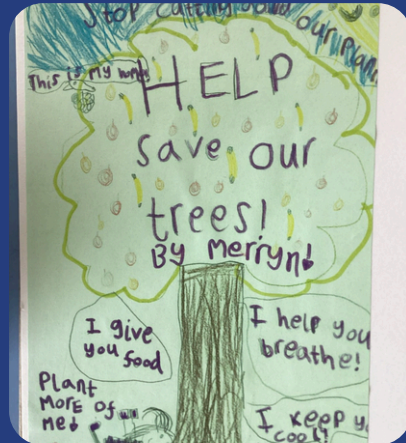 Stop cutting down
our plan
This is my home
HELP
save our
trees!
By Merryn!
I give
you food
I help you
breathe!
Plant
More of
me!
I keep y
cool!